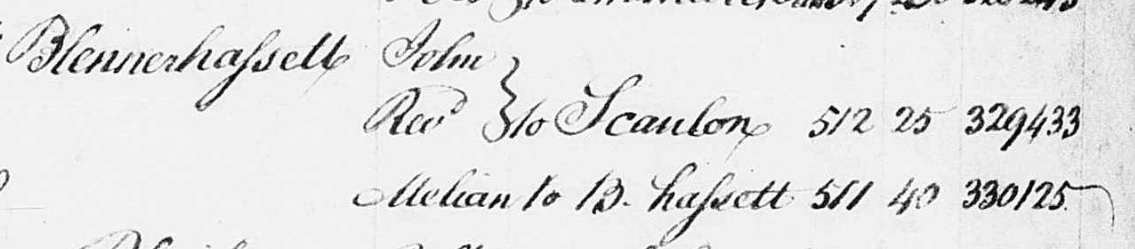 Blennerhaſsett John
Revd } to Scanlon 512 25 329433
Melian to B. haſsett 511 40 330125